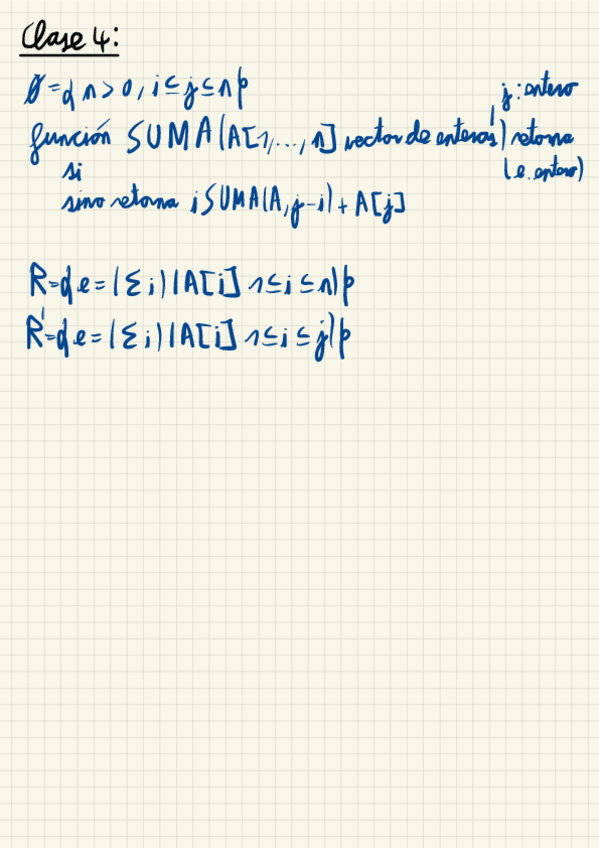 Clase 4:
Q = { n > 0, i ≤ j ≤ n }
función SUMA(A[1,...,n] vector de enteros, j: entero) retorna (e: entero)
si
sino retorna iSUMA(A, j-i) + A[j]
R = { e = (Σ i) (A[i] 1 ≤ i ≤ n) }
R' = { e = (Σ i) (A[i] 1 ≤ i ≤ j) }